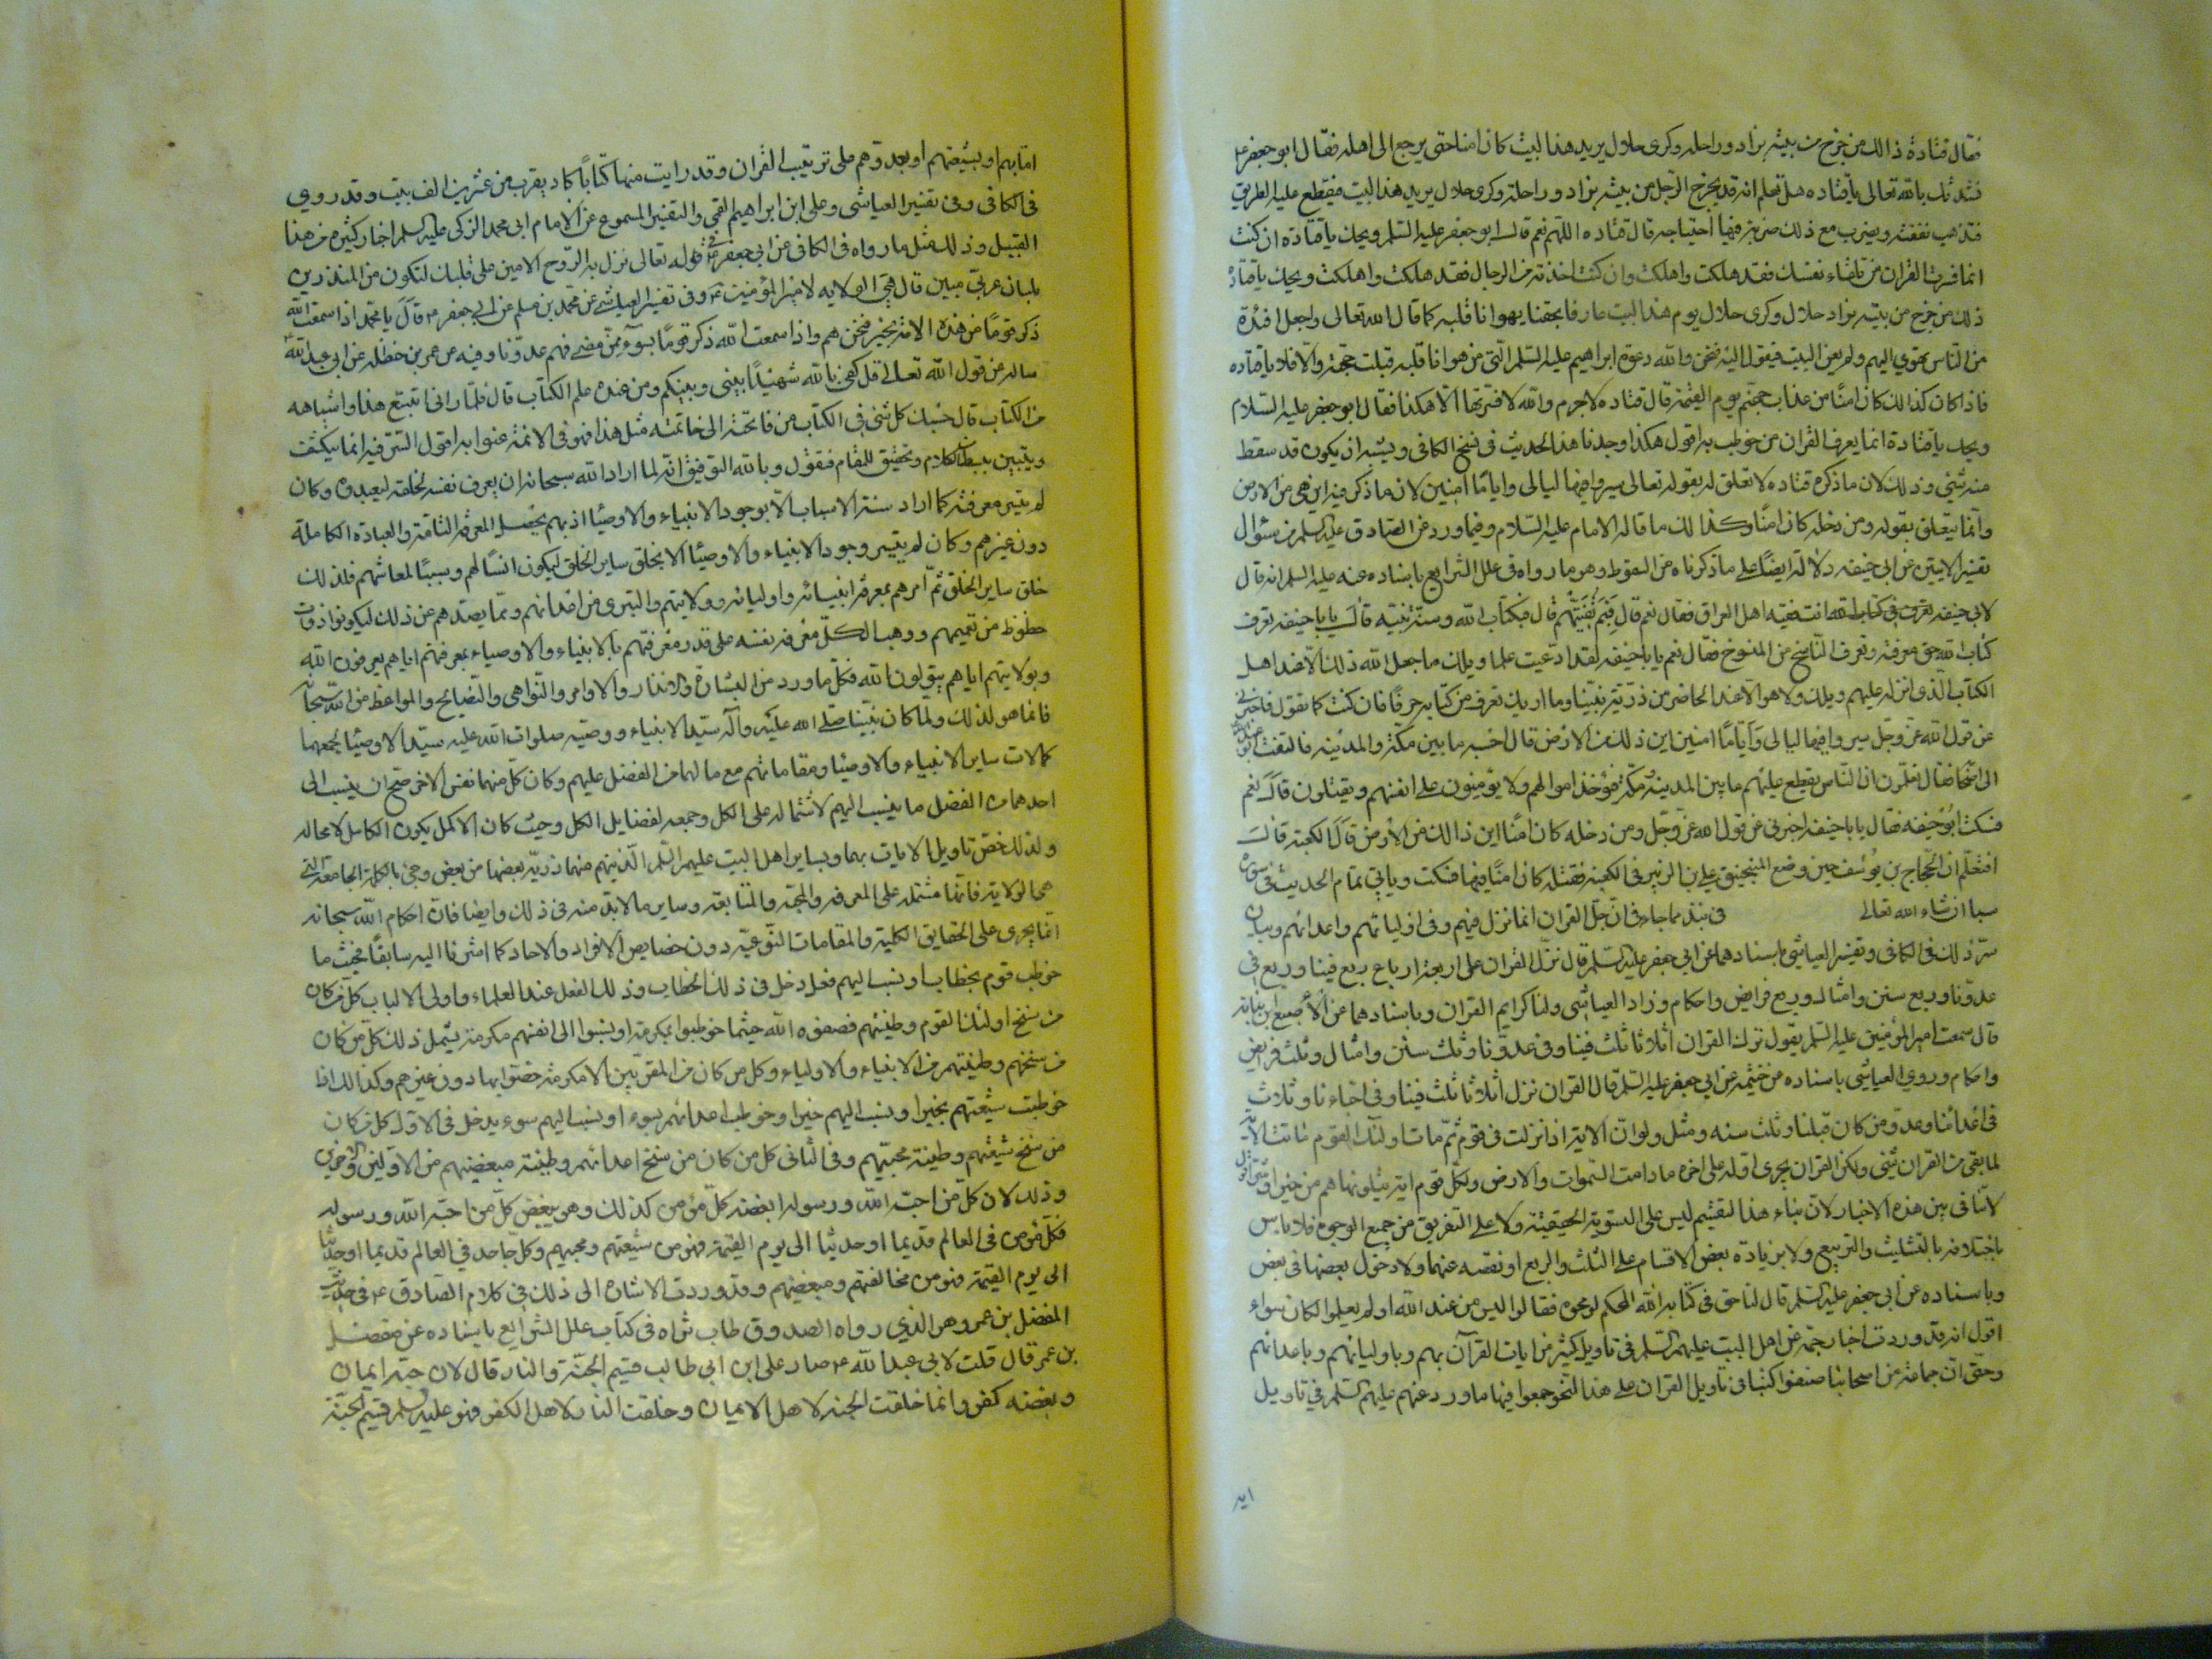 فقال قتادة ذالك من خرج من بيته بزاد وراحلة وكرى حلال يريد هذا البيت كان امنا حتى يرجع الى اهله فقال ابو جعفر ع
نشدتك بالله تعالى يا قتاده هل تعلم انه قد يخرج الرّجل من بيته بزاد وراحلة وكرى حلال يريد هذا البيت فيقطع عليه الطريق
فتذهب نفقته ويضرب مع ذلك ضربة فيها اجتياحه قال قتاده اللّهم نعم قال ابو جعفر عليه السّلم ويحك يا قتادة ان كنت
انما فسرت القران من تلقاء نفسك فقد هلكت واهلكت وان كنت اخذته من الرجال فقد هلكت واهلكت ويحك يا قتادة
ذلك من خرج من بيته بزاد حلال وكرى حلال يروم هذا البيت عارفا بحقنا يهوانا قلبه كما قال الله تعالى واجعل افئدة
من النّاس تهوي اليهم ولم يعن البيت فيقول اليه فنحن والله دعوة ابراهيم عليه السّلم الّتي من هوانا قلبه قبلت حجّته والّا فلا يا قتاده
فاذا كان كذالك كان امنًا من عذاب جهنّم يوم القيمة قال قتاده لا جرم والله لا فسّرتها الّا هكذا فقال ابو جعفر عليه السّلام
ويحك يا قتادة انما يعرف القران من خوطب به اقول هكذا وجدنا هذا الحديث في نسخ الكافي ويشبه ان يكون قد سقط
منه شئ وذلك لان ما ذكره قتاده لا تعلق له بقوله تعالى سيروا فيها ليالى واياما امنين لان ما ذكر فيه اين هي من الارض
وانما يتعلق بقوله ومن دخله كان امنًا وكذا لك ما قاله الامام عليه السّلام وفيما ورد عن الصّادق عليه السلم من سئوال
تفسير الايتين عن ابى حنيفه دلالة ايضًا على ما ذكرناه من السقوط وهو ما رواه في علل الشرايع باسناده عنه عليه السلم انه قال
لابى حنيفه انت فقيه اهل العراق فقال نعم قال فبم تفتيهم قال بكتاب الله وسنة نبيّه قال يا با حنيفه تعرف
كتاب الله حق معرفته وتعرف النّاسخ من المنسوخ فقال نعم يا با حنيفه لقد ادّعيت علما ويلك ما جعل الله ذلك الّا عند اهل
الكتاب الّذي انزله عليهم ويلك ولا هو الّا عند الخاص من ذرّية نبيّنا وما اريك تعرف من كتابه حرفًا فان كنت كما تقول فاخبرني
عن قول الله عزّ وجلّ سيروا فيها ليالى وايّامًا امنين اين ذلك من الارض قال احسبه ما بين مكّة والمدينه فالتفت ابو عبد الله
الى اصحابه فقال تعلمون ان النّاس يقطع عليهم ما بين المدينة ومكّة فتؤخذ اموالهم ولا يؤمنون على انفسهم ويقتلون قالَ نعم
فسكت ابو حنيفه فقال يا با حنيفه اخبرني عن قول الله عزّ وجلّ ومن دخله كان امنًا اين ذالك من الارض قالَ الكعبة قالَ
افتعلم ان الحجّاج بن يوُسف حين وضع المنجنيق على بن الزبير في الكعبة فقتله كان امنًا فيها فسكت وياتي تمام الحديث في سورة
سبا ان شاء الله تعالى في نبذ مما جاء في انّ جلّ القران انما نزل فيهم وفي اوليائهم واعدائهم وبيان
سرّ ذلك في الكافي وتفسير العياشي باسنادهما عن ابى جعفر عليه السلم قال نزّل القران على اربعة ارباع ربع فينا وربع في
عدوّنا وربع سنن وامثال وربع فرايض واحكام وزاد العياشي ولنا كرايم القران وباسنادهما عن الأصبغ بن نباته
قال سمعت امير المؤمنين عليه السّلم يقول نزل القران اثلاثا ثلث فينا وفي عدوّنا وثلث سنن وامثال وثلث فرايض
واحكام وروي العياشي باسناده عن خيثمه عن ابى جعفر عليه السلم قال القران نزل اثلاثا ثلث فينا وفي احبّاءنا وثلث
في اعدائنا وعدوّ من كان قبلنا وثلث سنه ومثل ولو انّ الاية اذا نزلت في قوم ثمّ مات اولئك القوم ماتت الاية
لما بقى من القران شئ ولكنّ القران يجرى اوّله على اخره ما دامت السّموات والارض ولكلّ قوم اية يتلونها هم من خير او شر اقول
لا تنافي بين هذه الاخبار لانّ بناء هذا التقسيم ليس على التسوية الحقيقيّة ولا على التفريق من جميع الوجوه فلا باس
باختلافه بالتثليث والتربيع ولا بزيادّة بعض الاقسام على الثلث والربع او نقصه عنهما ولا دخول بعضها في بعض
وباسناده عن ابى جعفر عليه السلم قال لنا حق في كتاب الله المحكم لو محوه فقالوا ليس من عند الله او لم يعلموا لكان سواء
اقول انه قد وردت اخبار جمّة عن اهل البيت عليهم السلم في تاويل كثير من ايات القرآن بهم وباوليائهم وباعدائهم
وحتّى انّ جماعة من اصحابنا صنفوا كتبا في تاويل القران على هذا النحو جمعوا فيها ما ورد عنهم عليهم السلم في تاويل
اية
امّا بهم او بشيعتهم او بعدوّهم على ترتيب القران وقد رايت منها كتابًا كاد يقرب من عشرين الف بيت وقد روي
في الكافي وفي تفسير العياشي وعلى ابن ابراهيم القمي والتفسير المسموع عن الامام ابى محمد الزكى عليه السلم اخبار كثيره من هذا
القبيل وذلك مثل ما رواه في الكافي عن ابى جعفر في قوله تعالى نزل به الرّوح الامين على قلبك لتكون من المنذرين
بلسان عربّي مبين قال هي الولايه لامير المؤمنين ع وفي تفسير العياشي عن محمّد بن مسلم عن ابى جعفر ع قالَ يا محمّد اذا سمعت الله
ذكر قومًا من هذه الامّة بخير فنحن هم واذا سمعت الله ذكر قومًا بسوءٍ ممّن مضى فهم عدوّنا وفيه عن عمر بن حنظله عن ابى عبد الله
ساله عن قول الله تعالى قل كفى بالله شهيدًا بيني وبينكم ومن عنده علم الكتاب قال فلمّا راني اتبتع هذا واشباهه
من الكتاب قال حسبك كل شئ في الكتاب من فاتحته الى خاتمته مثل هذا فهو في الائمّة عنوا به اقول السّر فيه انما ينكشف
ويتبين ببسط الكلام وتحقيق للمقام فنقول وبالله التوفيق انّه لما اراد الله سبحانه ان يعرف نفسه لخلقه ليعبدوه وكان
لم يتيسر معرفته كما اراد سنة الاسباب الّا بوجود الانبياء والاوصيا اذ بهم يحصل المعرفة التامّة والعبادة الكاملة
دون غيرهم وكان لم يتيسر وجود الانبياء والاوصيا الا بخلق ساير الخلق ليكون انسًا لهم وسببًا لمعاشهم فلذلك
خلق ساير الخلق ثمّ امرهم بمعرفة انبيائه واوليائه وولايتهم والتبرى من اعدائهم وممّا يصدّهم عن ذلك ليكونوا ذوات
حظوظ من نعيمهم ووهب الكلّ معرفة نفسه على قدر معرفتهم بالانبياء والاوصياء بمعرفتهم اياهم يعرفون الله
وبولايتهم اياهم يتولون الله فكلّ ما ورد من البشارة والانذار والاوامر والنّواهى والنّصايح والمواعظ من الله سبحانه
فانما هو لذلك ولما كان نبيّنا صلّى الله عليه وآله سيّد الانبياء ووصيّه صلوات الله عليه سيّد الاوصيا لجمعهما
كمالات ساير الانبياء والاوصيا ومقاماتهم مع ما لهما من الفضل عليهم وكان كلّ منهما نفس الاخر صحّ ان ينسب الى
احدهما من الفضل ما ينسب اليهم لاشتماله على الكل وجمعه لفضايل الكل وحيث كان الاكمل يكون الكامل لا محاله
ولذلك خصّ تاويل الايات بهما وبساير اهل البيت عليهم السّلم الّذينهم منهما ذريّة بعضها من بعض وجئ بالكلمة الجامعة التي
هي الولاية فانّها مشتمله على المعرفه والمحبّة والمتابعة وساير ما لا بدّ منه في ذلك وايضا فانّ احكام الله سبحانه
انّما يجرى على الحقايق الكلية والمقامات النّوعيّه دون خصايص الافراد والاحاد كما اشرنا اليه سابقًا فحيث ما
خوطب قوم بخطاب او نسب اليهم فعل دخل في ذلك الخطاب وذلك الفعل عند العلماء واولى الالباب كل من كان
من سنخ اولئك القوم وطينتهم فصفوه الله حيثما خوطبوا بمكرمة او نسبوا الى انفسهم مكرمة يشمل ذلك كلّ من كان
من سنخهم وطينتهم من الانبياء والاولياء وكل من كان من المقرّبين الا مكرمة خصّوا بها دون غيرهم وكذا لك اذا
خوطبت شيعتهم بخير او نسب اليهم خير او خوطب اعدائهم بسوء او نسب اليهم سوء يدخل في الاوّل كل من كان
من سنخ شيعتهم وطينة محبيّهم وفي الثاني كل من كان من سنخ اعدائهم وطينة مبغضيهم من الاوّلين والاخرين
وذلك لان كلّ من احبّه الله ورسوله احبه كلّ مؤمن كذلك وهو يبغض كلّ من احبّه الله ورسوله
فكلّ مؤمن في العالم قديما او حديثا الى يوم القيمة فهو من شيعتهم ومحبيهم وكلّ جاحد في العالم قديما او حديثا
الى يوم القيمة فهو من مخالفتهم ومبغضيهم وقد وردت الاشارة الى ذلك في كلام الصّادق ع في حديث
المفضل بن عمر وهو الذي رواه الصدوق طاب ثراه في كتاب علل الشرايع باسناده عن مفضل
بن عمر قال قلت لابى عبد الله ع صار على ابن ابى طالب قسيم الجنّة والنار قال لان حبّه ايمان
وبغضه كفر وانما خلقت الجنة لاهل الايمان وخلقت النار لاهل الكفر فهو عليه السلم قسيم الجنّة